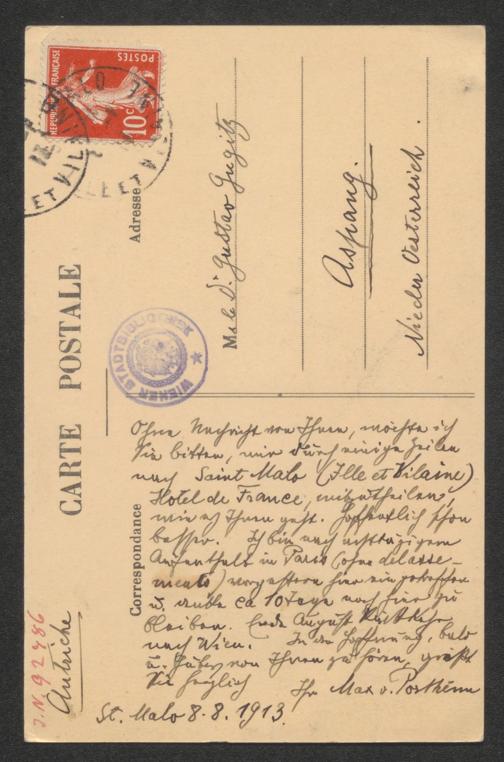 CARTE POSTALE
Correspondance
Adresse
REPUBLIQUE FRANÇAISE
POSTES
10c
ILLE ET VILAINE
WIENER STADTBIBLIOTHEK
M de Dr. Gustav Gugitz
Aspang.
Nieder Oesterreich.
Ohne Nachricht von Ihnen, möchte ich
Sie bitten, mir durch einige Zeilen
nach Saint Malo (Ille et Vilaine)
Hotel de France, mitzutheilen,
wie es Ihnen geht. Hoffentlich schon
besser. Ich bin nach achttägigem
Aufenthalt in Paris (ohne délasse-
ments) vorgestern hier eingetroffen
u. denke ca 10 Tage noch hier zu
bleiben. Ende August Rückkehr
nach Wien. In der Hoffnung, bald
u. Gutes von Ihnen zu hören, grüßt
Sie herzlich Ihr Max v. Portheim
St. Malo 8.8.1913.
Autriche
J.N. 92486